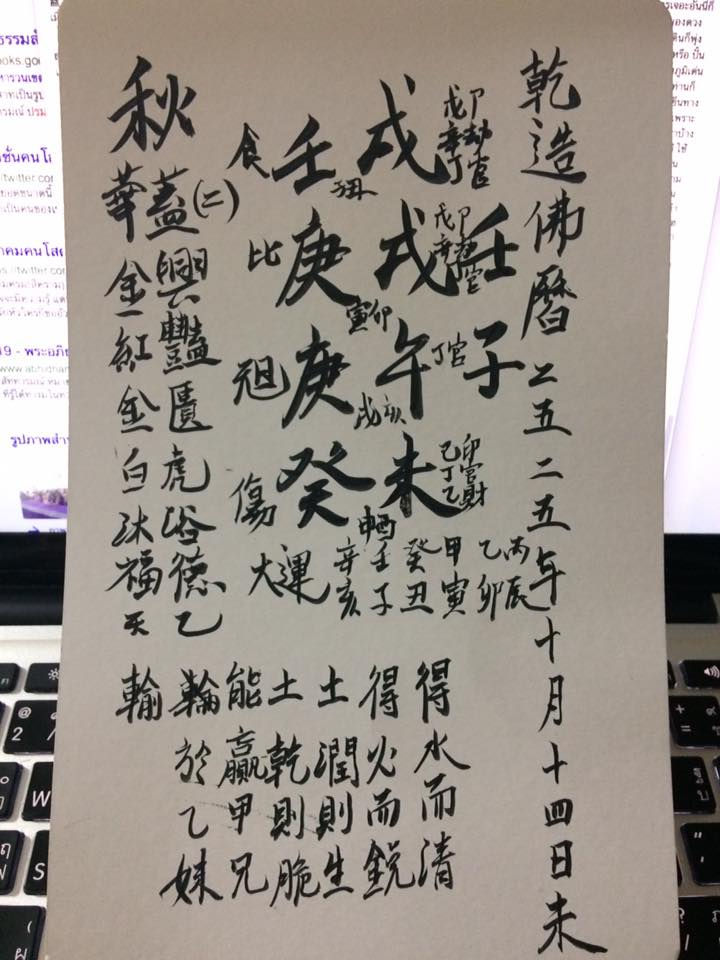 乾造佛曆二五二五年十月十四日未
壬子
食 壬 戌 戊辛丁 卩劫官
比 庚 戌 戊辛丁 卩劫官
寅卯
庚 午 丁官
戌亥
傷 癸 未 己丁乙 印官財
申酉
大運 辛亥 壬子 癸丑 甲寅 乙卯 丙辰
得水而清
得火而銳
土潤則生
土乾則脆
能贏甲兄
輪於乙妹
輸
秋
華蓋(二)
金輿
紅豔
金匱
白虎
沐浴
福德
天乙